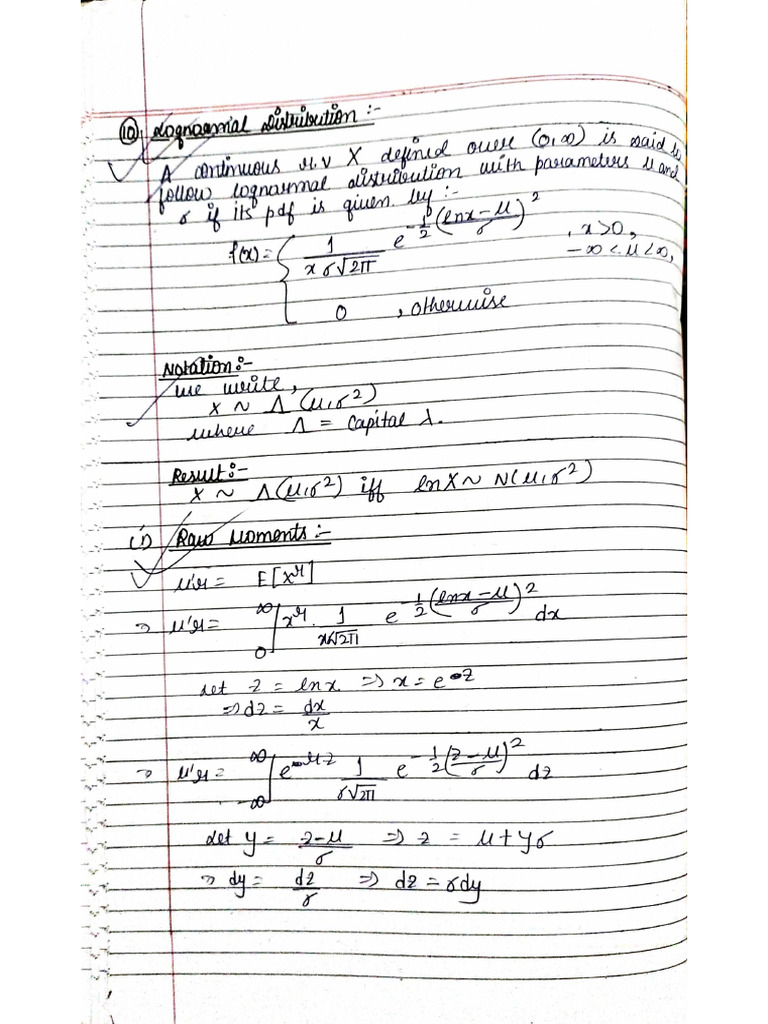 (10) Lognormal Distribution :-
A continuous r.v X defined over (0,∞) is said to
follow lognormal distribution with parameters μ and
σ if its pdf is given by :-
f(x) = { 1/(xσ√2π) e^{-1/2((lnx-μ)/σ)^2} , x>0, -∞<μ<∞,
0 , otherwise
Notation :-
we write,
X ~ Λ(μ,σ²)
where Λ = Capital λ.
Result :-
X ~ Λ(μ,σ²) iff lnX ~ N(μ,σ²)
(i) Raw Moments :-
μ'r = E[X^r]
⇒ μ'r = ∫_0^∞ x^r . 1/(x√2π) e^{-1/2((lnx-μ)/σ)^2} dx
let z = lnx ⇒ x = e^z
⇒ dz = dx/x
⇒ μ'r = ∫_{-∞}^∞ e^{rz} 1/(σ√2π) e^{-1/2((z-μ)/σ)^2} dz
let y = (z-μ)/σ ⇒ z = μ+yσ
⇒ dy = dz/σ ⇒ dz = σdy